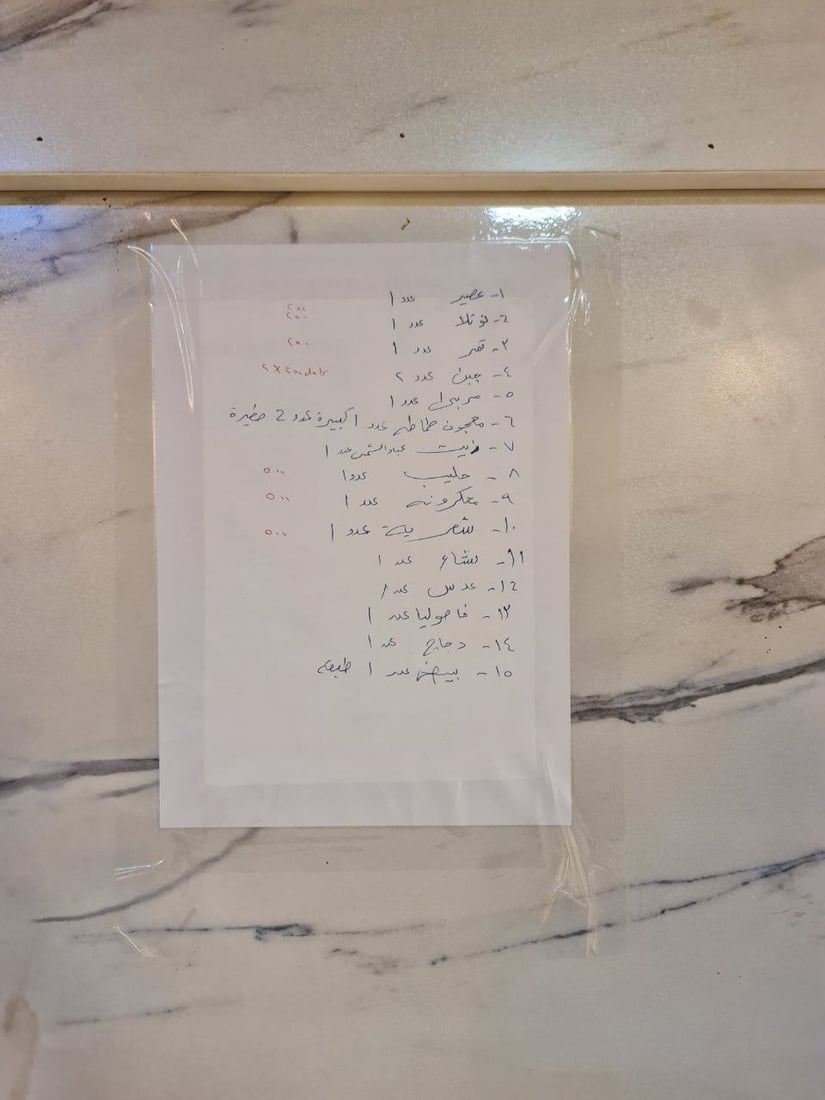 ١- عصير عدد ١
٢- نوتلا عدد ١ ٢٥٠
٣- تمر عدد ١ ٢٥٠
٤- جبن عدد ٢
٥- مربى عدد ١
٦- معجون طماطه عدد ١ كبيرة عدد 2 صغيرة
٧- زيت عباد الشمس عدد ١
٨- حليب عدد ١ ٥٠٠
٩- معكرونه عدد ١ ٥٠٠
١٠- شعرية عدد ١ ٥٠٠
١١- نشاء عدد ١
١٢- عدس عدد ١
١٣- فاصوليا عدد ١
١٤- دجاج عدد ١
١٥- بيض عدد ١ طبقه